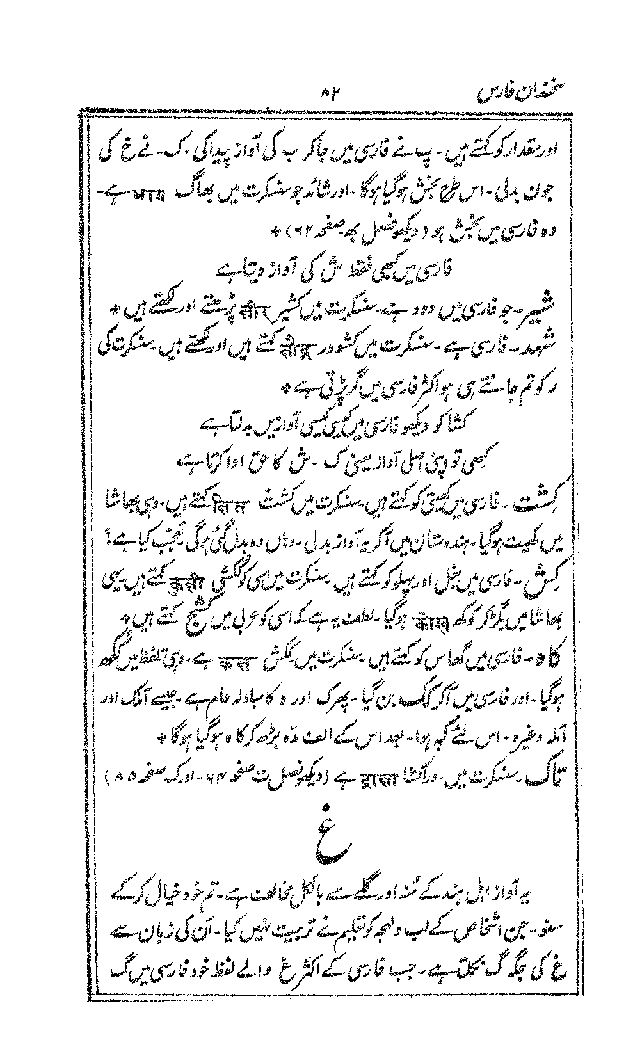 سخندان فارس ۸۲
اور مقدار کو کہتے ہیں - پ نے فارسی میں جاکر ب کی آواز پیدا کی - ک - نے غ کی
جون بدلی - اس طرح بخش ہوگیا ہوگا - اور شائد جو سنسکرت میں بھاگ भाग ہے -
وہ فارسی میں بخش ہو (دیکھو فصل بھ صفحہ ۶۲) +
فارسی میں کبھی فقط ش کی آواز دیتا ہے
شیر - جو فارسی میں دودہ ہے - سنسکرت میں کشیر क्षीर پڑھتے اور لکھتے ہیں +
شہد - فارسی ہے - سنسکرت میں کشودر क्षौद्र کہتے ہیں اور لکھتے ہیں - سنسکرت کی
ر کو تم جانتے ہی ہو اکثر فارسی میں گر پڑتی ہے +
کشا کو دیکھو فارسی میں کیسی کیسی آوازیں بدلتا ہے
کبھی تو اپنی اصلی آواز یعنی ک - ش کا حق ادا کرتا ہے
کشت - فارسی میں کھیتی کو کہتے ہیں - سنسکرت میں کشت کہتے ہیں - وہی بھاشا
میں کھیت ہوگیا - ہندوستان میں آکر یہ آواز بدلی - وہاں وہ بدل گئی ہوگی تعجب کیا ہے ؟
کش - فارسی میں بغل اور پہلو کو کہتے ہیں - سنسکرت میں اسی کو کُکشی कुक्षी کہتے ہیں یہی
بھاشا میں بگڑ کر کوکھ कोख ہوگیا - لطف یہ ہے کہ اسی کو عربی میں کشح کہتے ہیں +
کاہ - فارسی میں گھاس کو کہتے ہیں - سنسکرت میں ککش कक्ष ہے - وہی تلفظ میں
ہوگیا - اور فارسی میں آکر بن گیا - پھر ک اور ہ کا مبادلہ عام ہے - جیسے آمک اور
آمہ وغیرہ - اس لئے کہہ ہوا - بعد اس کے الف مدّہ بڑھ کر کاہ ہوگیا ہوگا +
تاک - سنسکرت میں - دراکشا द्राक्षा ہے (دیکھو فصل ت صفحہ ۶۴ - اورک صفحہ ۸۵)
غ
یہ آواز اہل ہند کے مُنہ اور گلے سے بالکل مخالف ہے - تم خود خیال کر کے
سنو - جن اشخاص کے لب و لہجہ کو تعلیم نے تربیت نہیں کیا - اُن کی زبان سے
غ کی جگہ گ نکلتا ہے - جب فارسی کے اکثر غ والے لفظ خود فارسی میں گ